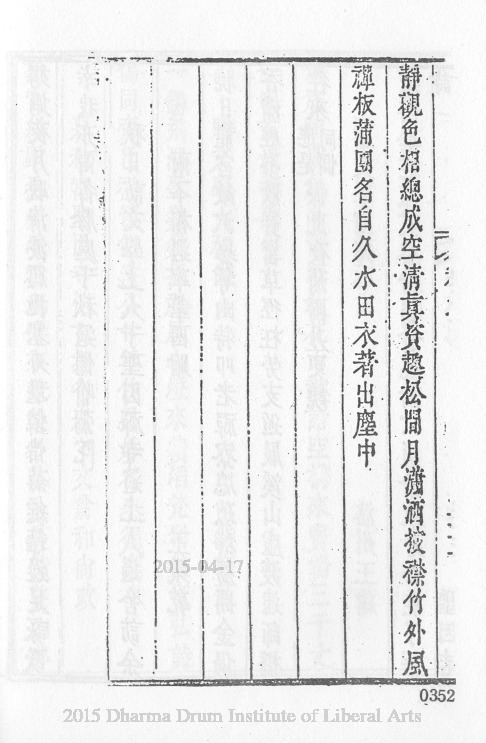 靜觀色相總成空清真符趣松間月瀟洒披襟竹外風
禪板蒲團名自久水田衣著出塵中
2015-04-17
0352
2015 Dharma Drum Institute of Liberal Arts